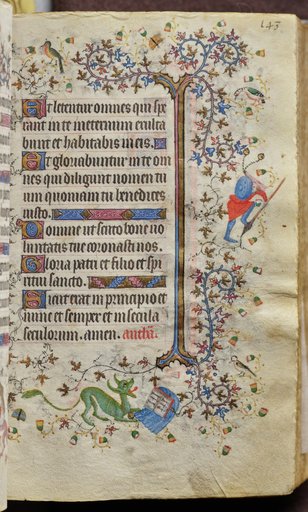 143
Et letentur omnes qui spe
rant in te in eternum exulta
bunt et habitabis in eis.
Et gloriabuntur in te om
nes qui diligunt nomen tu
um quoniam tu benedices
iusto.
Domine ut scuto bone uo
luntatis tue coronasti nos.
Gloria patri et filio et spi
ritui sancto.
Sicut erat in principio et
nunc et semper et in secula
seculorum. amen. antha.